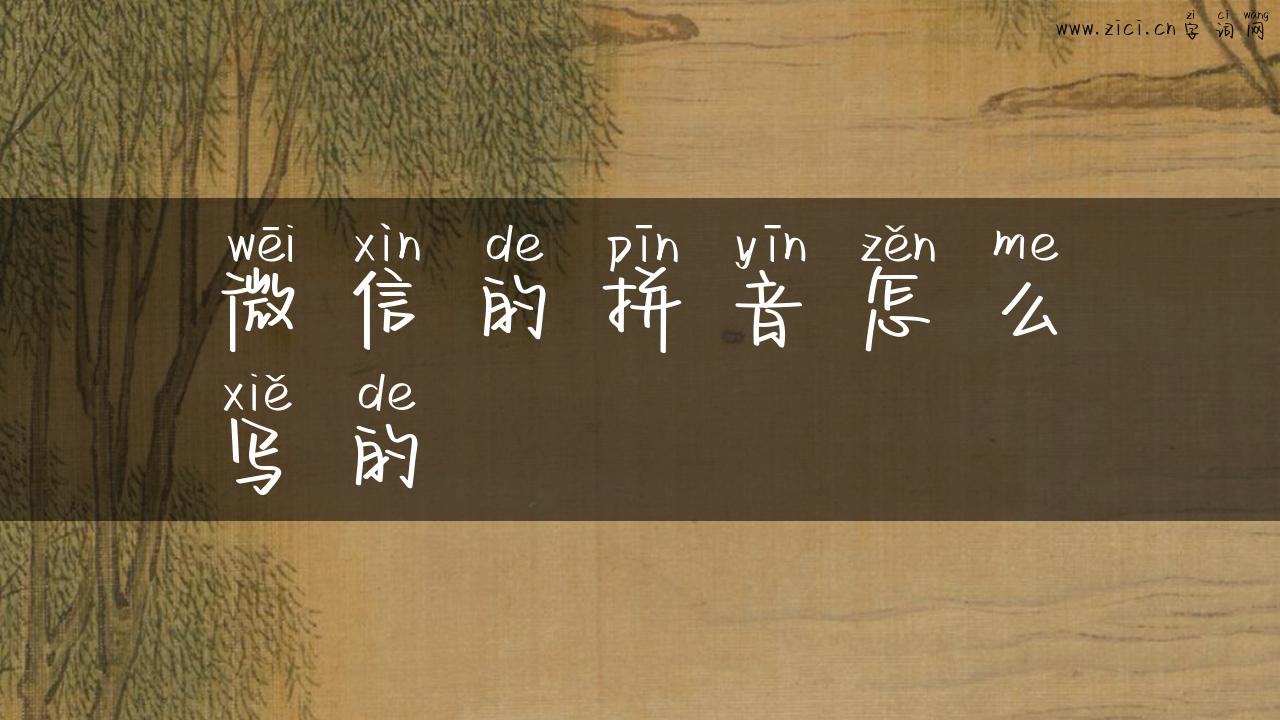 zì cí wǎng
www.zici.cn 字词网
wēi xìn de pīn yīn zěn me
微信的拼音怎么
xiě de
写的